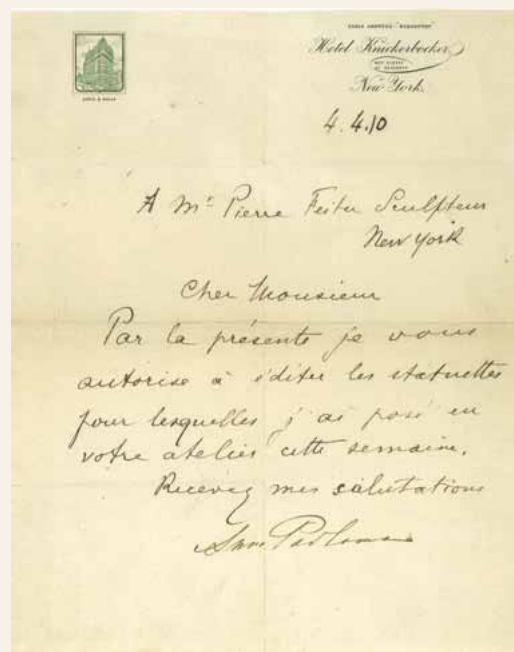 Hotel Knickerbocker
New York
4.4.10
A Mr Pierre Feitu Sculpteur
New York
Cher Monsieur
Par la présente je vous
autorise à éditer les statuettes
pour lesquelles j'ai posé en
votre atelier cette semaine.
Recevez mes salutations
Anna Pavlowa